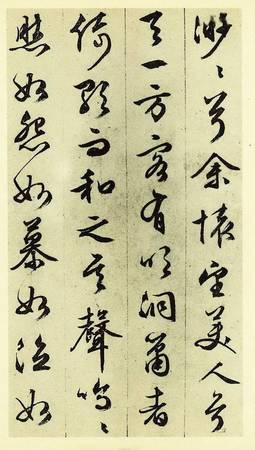 渺〻兮余懷望美人兮
天一方客有吹洞簫者
倚歌而和之其聲嗚〻
然如怨如慕如泣如